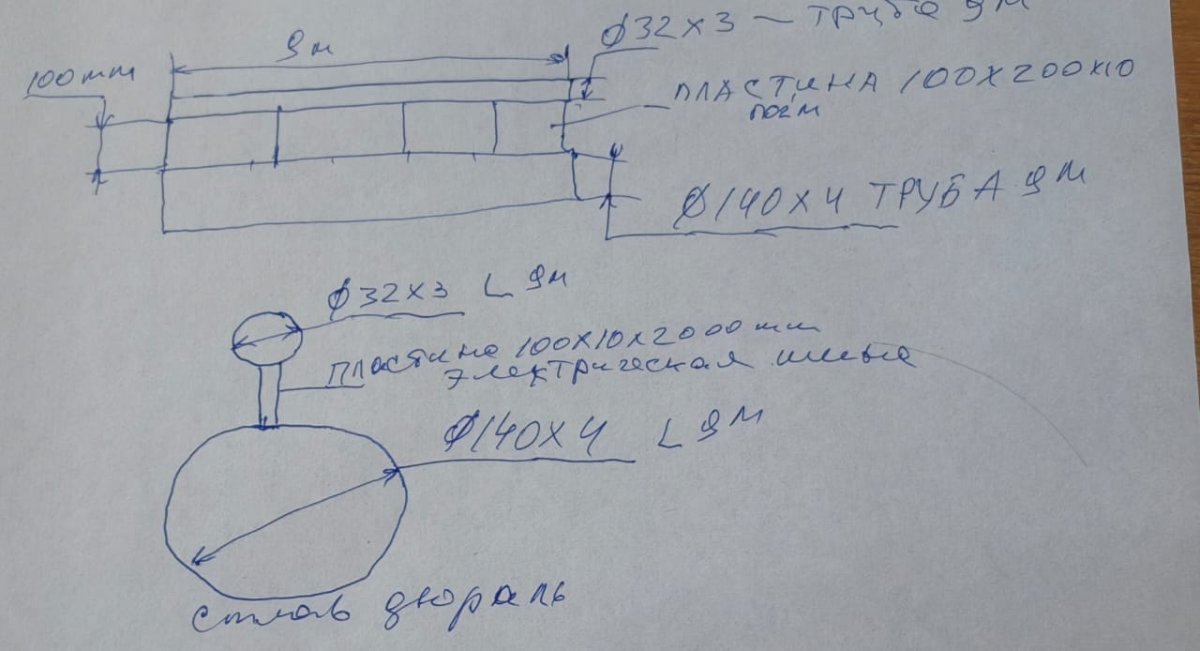 Ø32×3 — ТРУБА 9М
9м
100mm
ПЛАСТИНА 100×200×10
Ø140×4 ТРУБА 9М
Ø32×3 L 9М
ПЛАСТИНА 100×10×2000mm
ЭЛЕКТРИЧЕСКАЯ шина
Ø140×4 L 9М
сплав дюраль